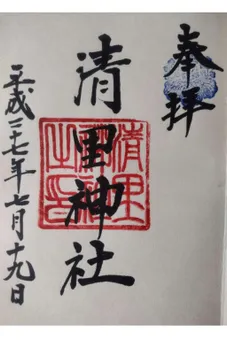 奉拝
清里神社
平成二十七年七月十九日